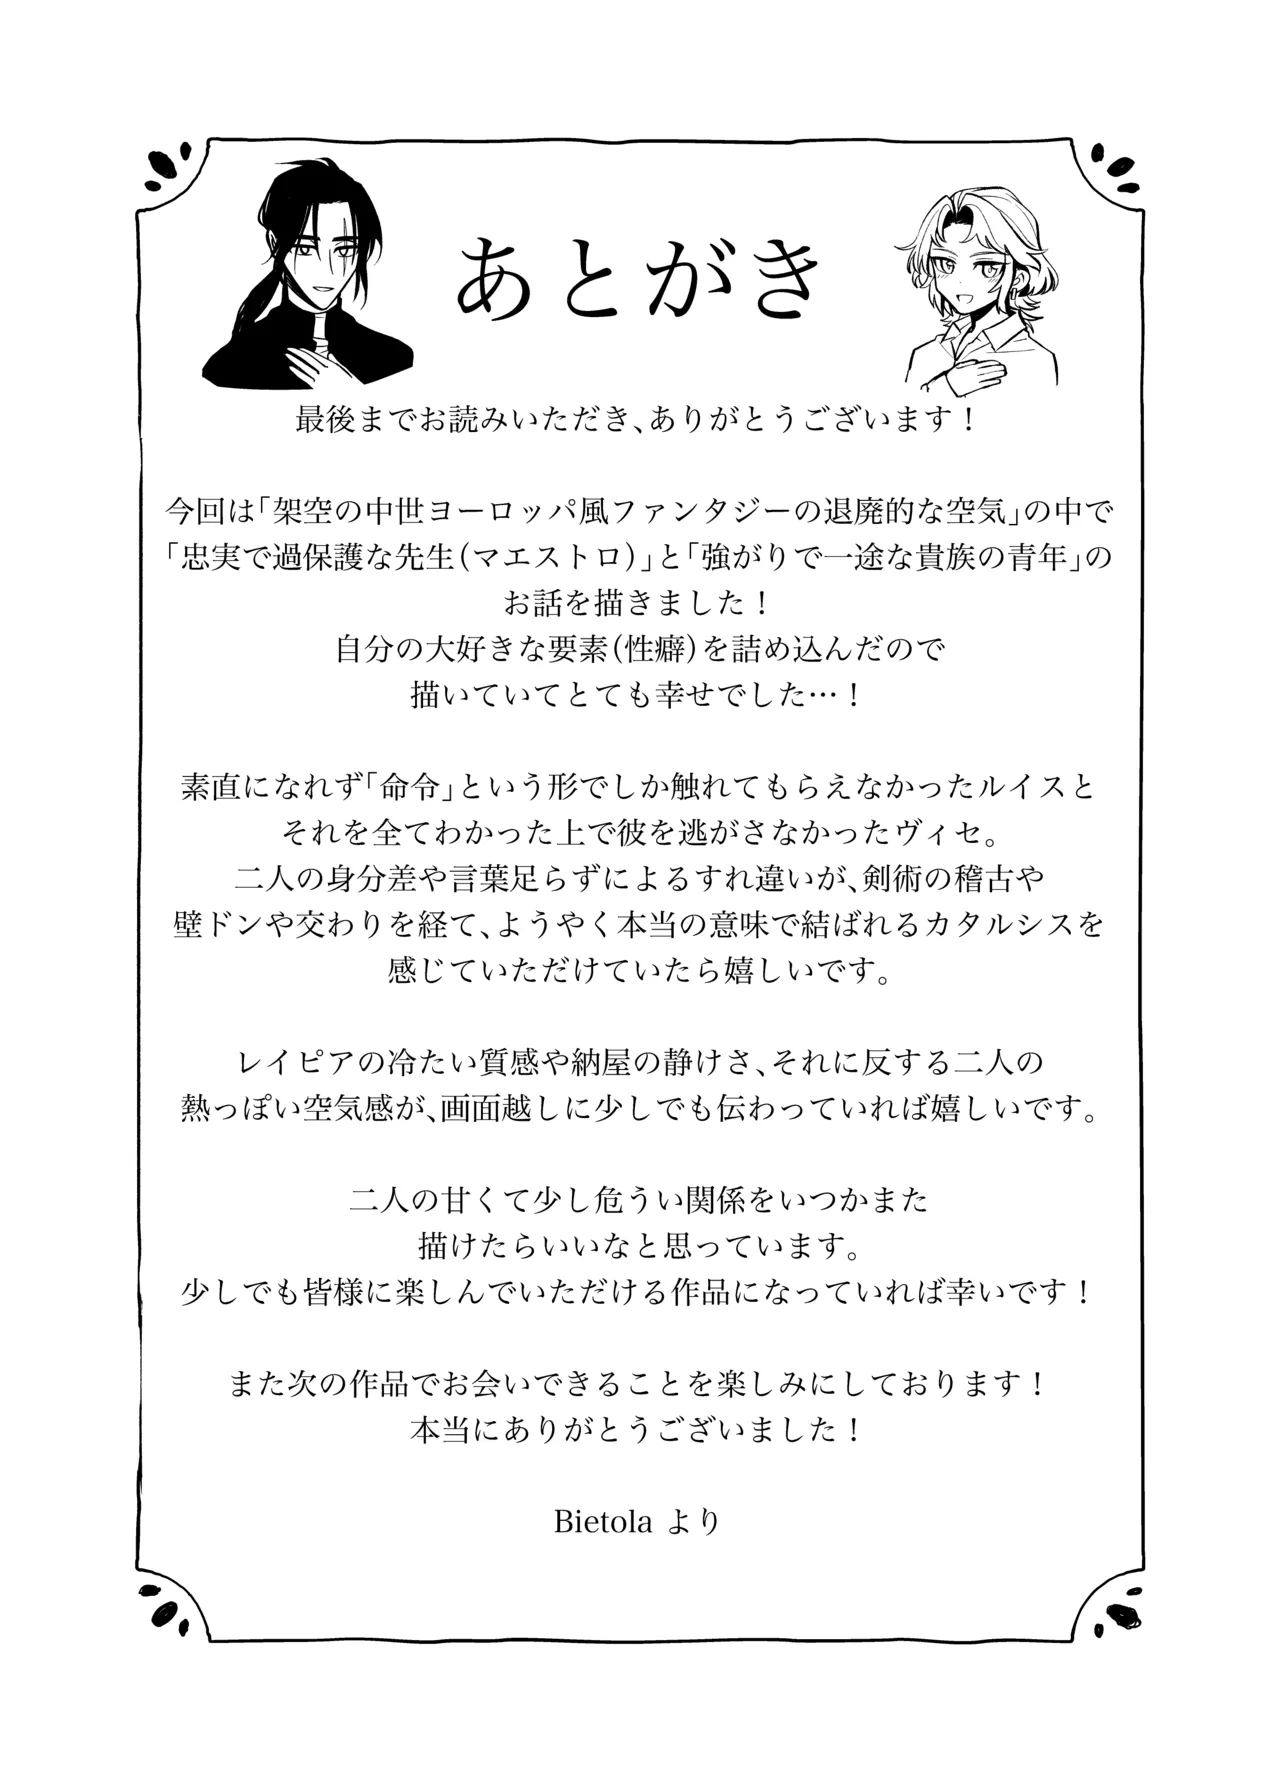 あとがき
最後までお読みいただき、ありがとうございます！
今回は「架空の中世ヨーロッパ風ファンタジーの退廃的な空気」の中で
「忠実で過保護な先生（マエストロ）」と「強がりで一途な貴族の青年」の
お話を描きました！
自分の大好きな要素（性癖）を詰め込んだので
描いていてとても幸せでした…！
素直になれず「命令」という形でしか触れてもらえなかったルイスと
それを全てわかった上で彼を逃がさなかったヴィセ。
二人の身分差や言葉足らずによるすれ違いが、剣術の稽古や
壁ドンや交わりを経て、ようやく本当の意味で結ばれるカタルシスを
感じていただけていたら嬉しいです。
レイピアの冷たい質感や納屋の静けさ、それに反する二人の
熱っぽい空気感が、画面越しに少しでも伝わっていれば嬉しいです。
二人の甘くて少し危うい関係をいつかまた
描けたらいいなと思っています。
少しでも皆様に楽しんでいただける作品になっていれば幸いです！
また次の作品でお会いできることを楽しみにしております！
本当にありがとうございました！
Bietola より